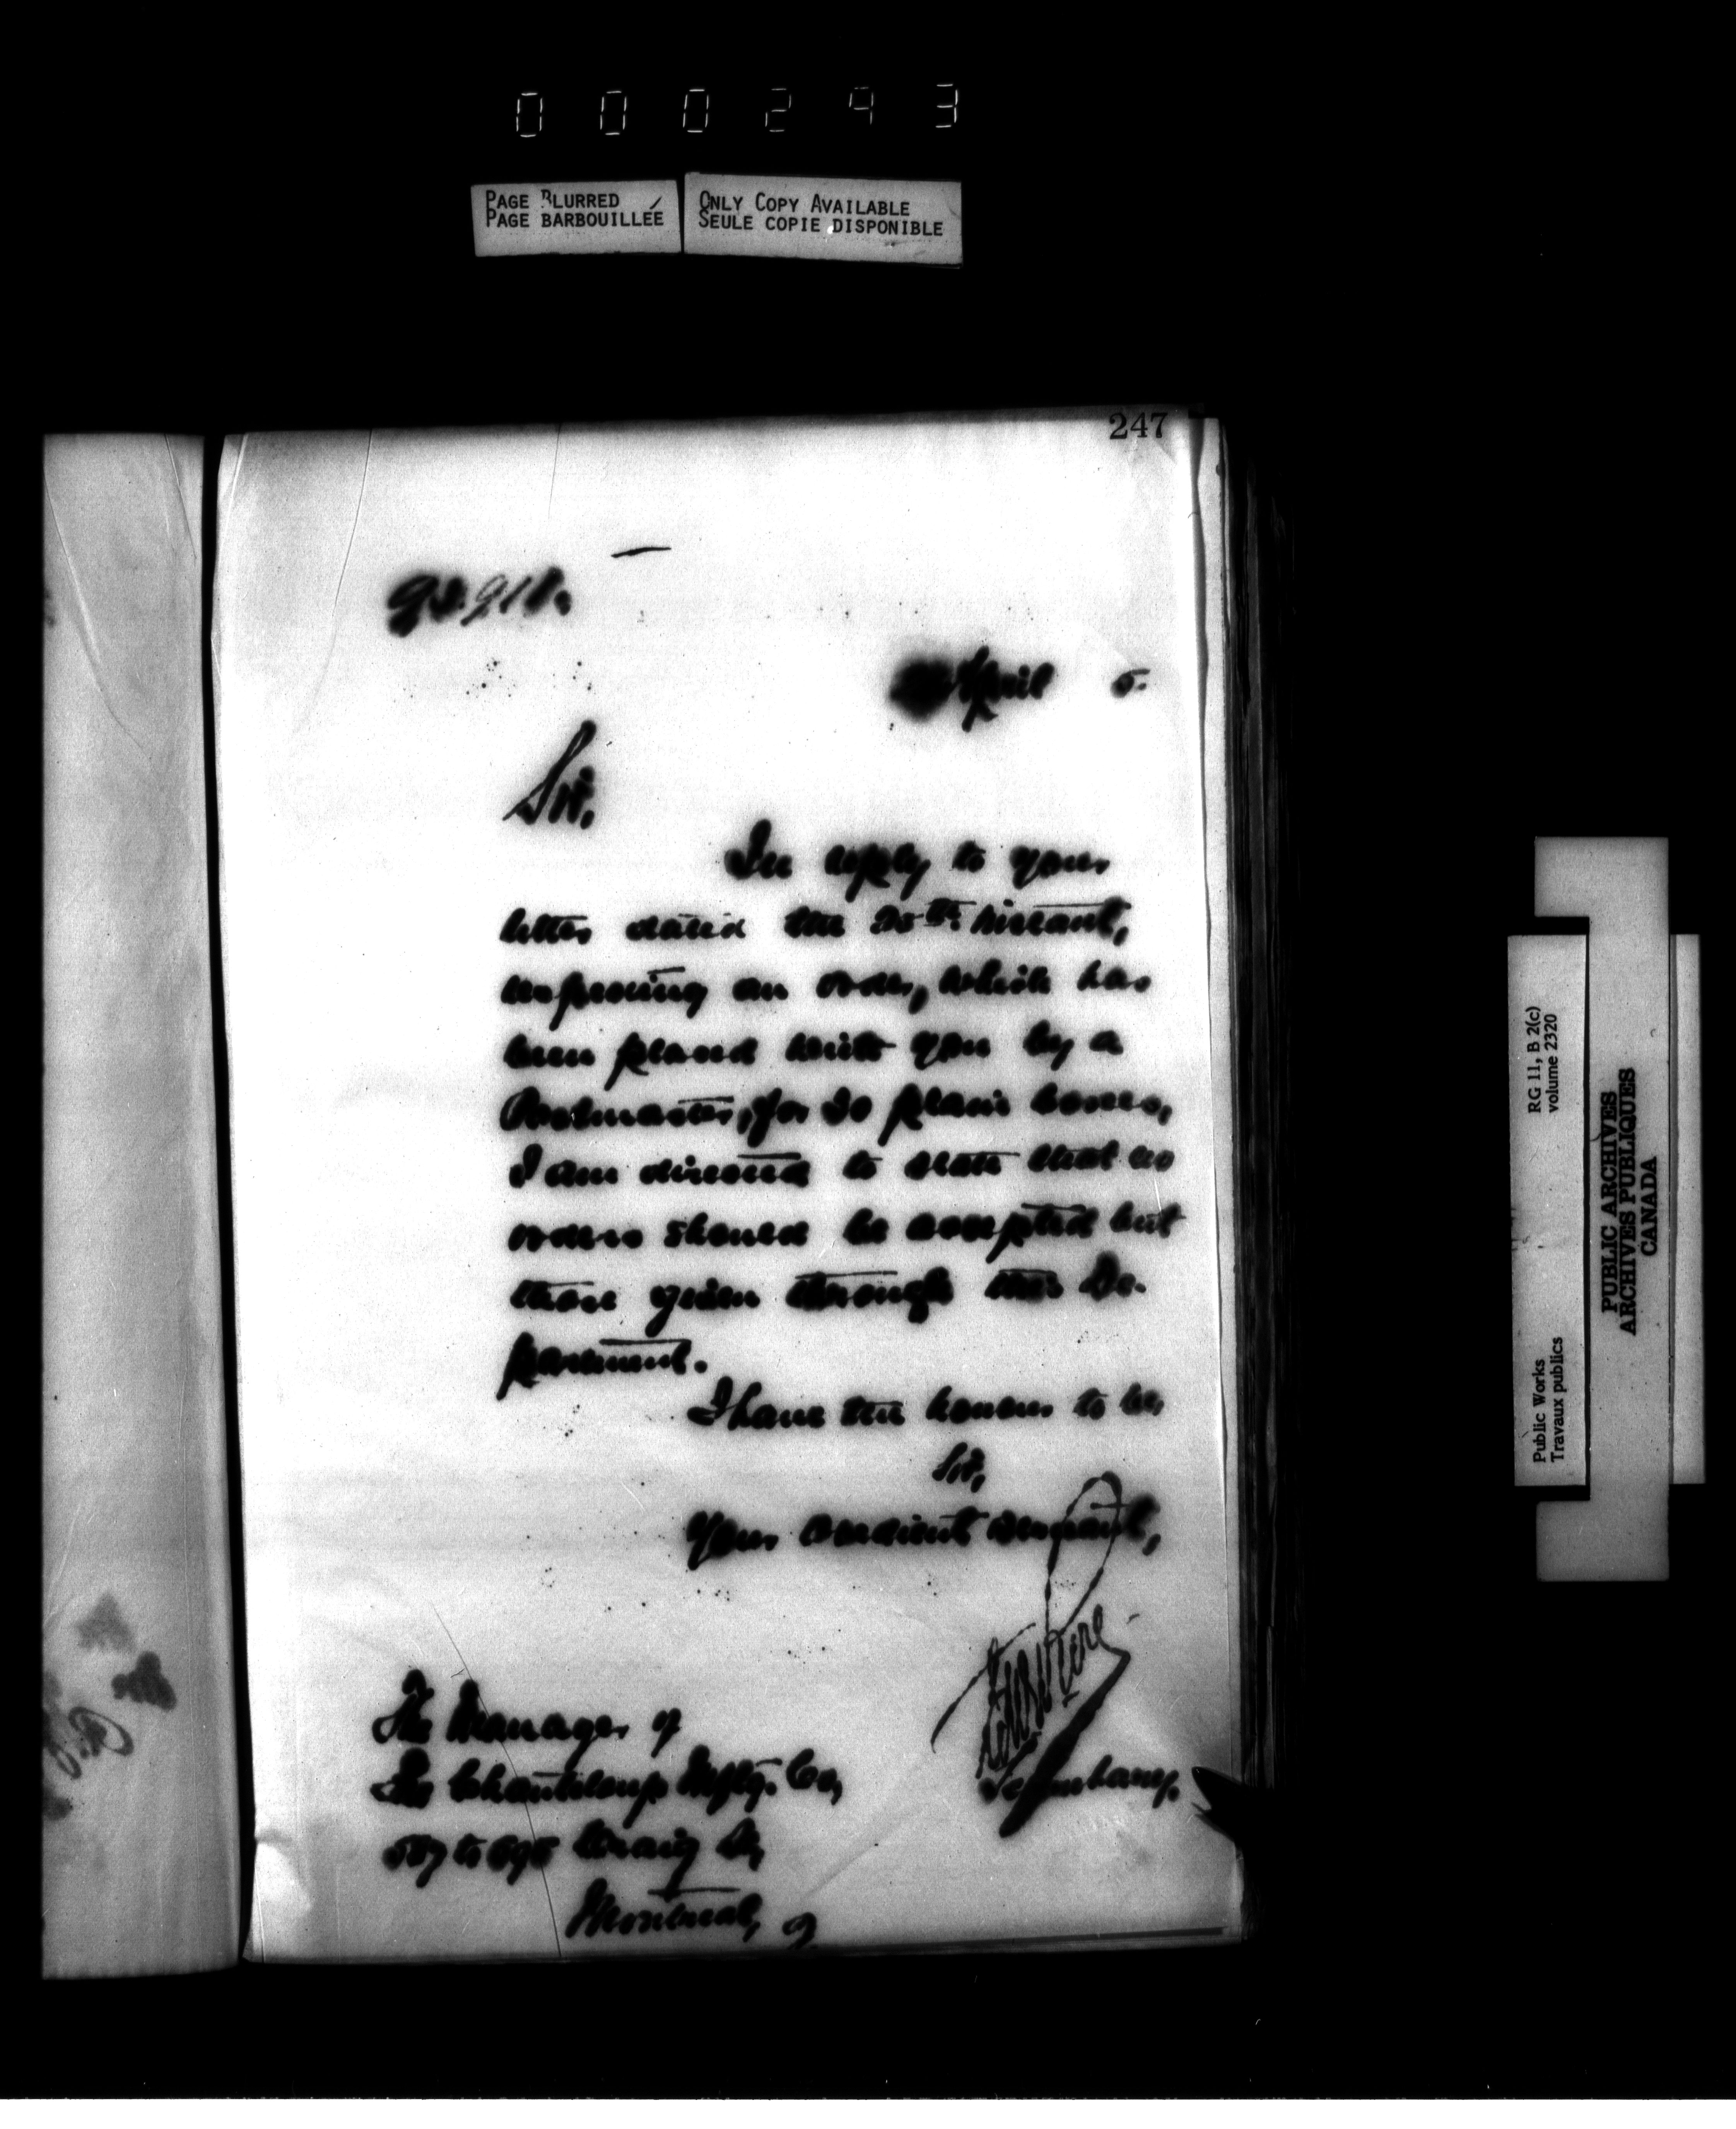 000293
PAGE BLURRED
PAGE BARBOUILLÉE
ONLY COPY AVAILABLE
SEULE COPIE DISPONIBLE
247
April 5.
Sir,
In reply to your
letter dated the th. instant,
an order, which has
been placed with you by a
Postmaster, for 30 plain boxes,
I am directed to state that no
orders should be accepted but
those given through this De-
partment.
I have the honour to be,
Sir,
Your obedient servant,
Secretary.
The Manager of
The Chanteloup Mfg. Co,
587 to 595 Craig St,
Montreal, Q
RG 11, B 2(c)
volume 2320
Public Works
Travaux publics
PUBLIC ARCHIVES
ARCHIVES PUBLIQUES
CANADA